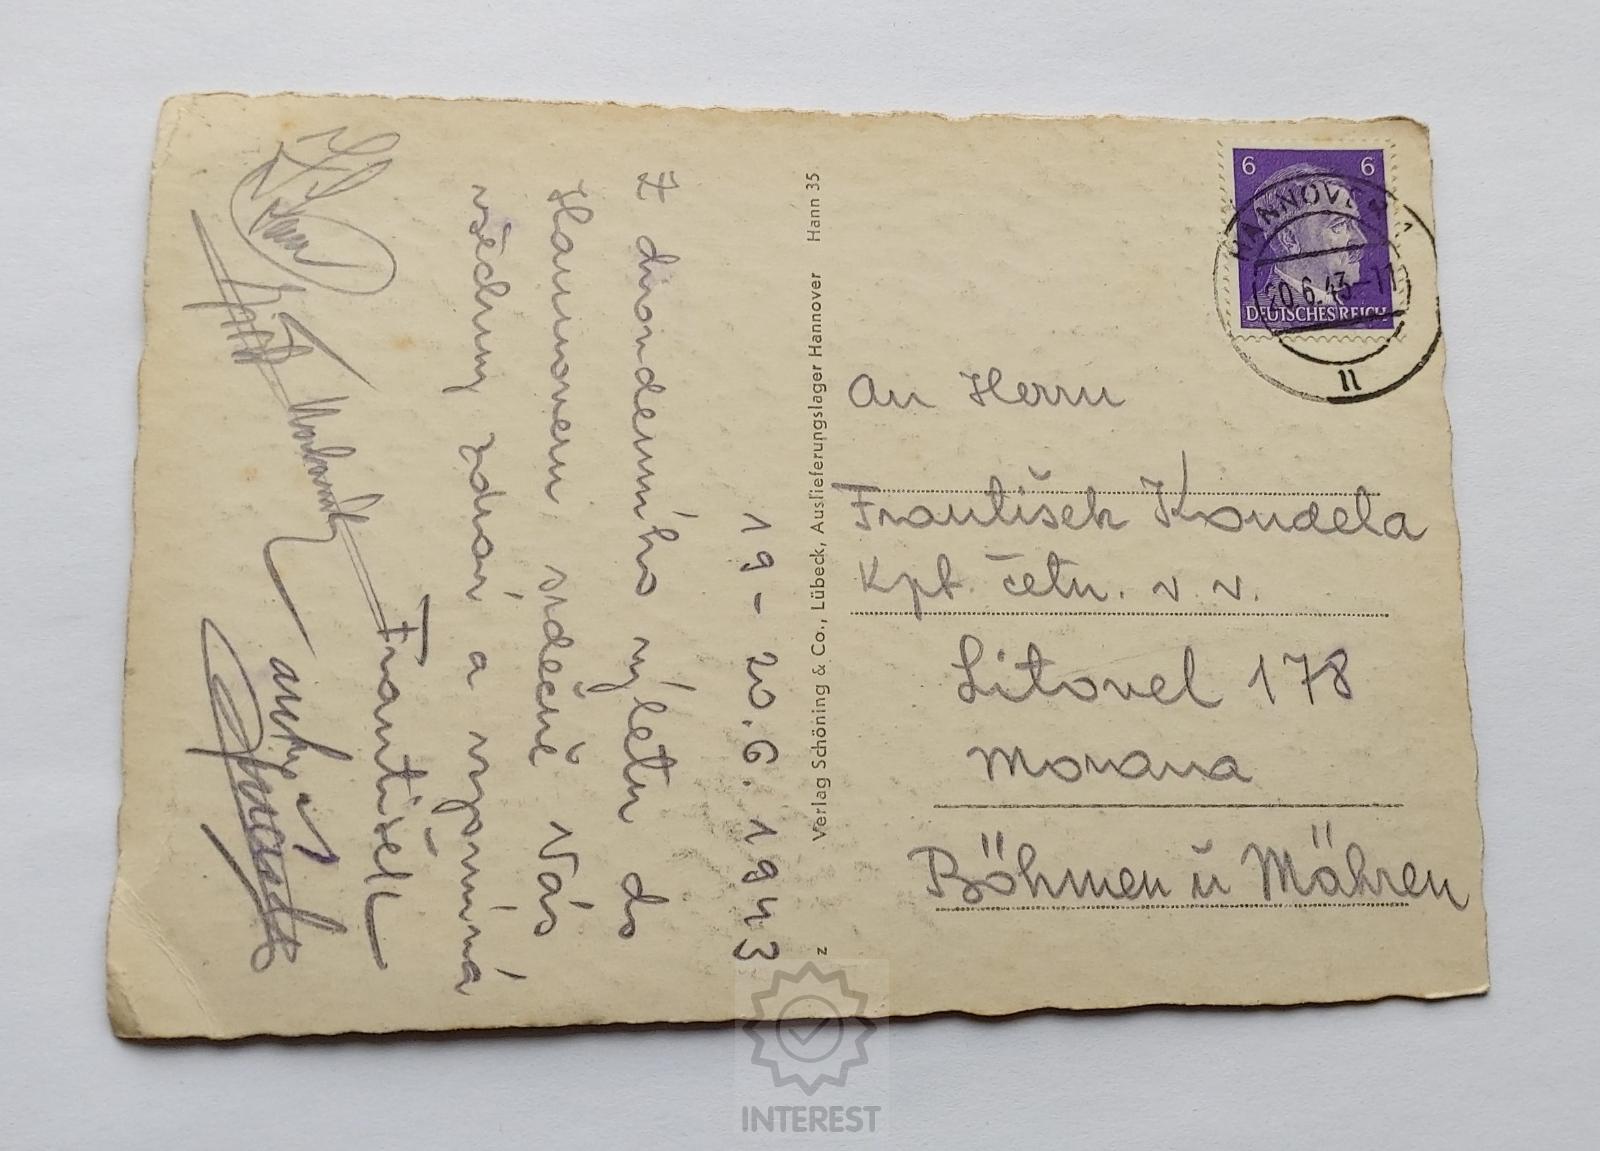 19 - 20. 6. 1943
Z dvondenního výletu do
Hannoveru srdečně Vás
všechny zdraví a vzpomíná
František
6 6
HANNOVER
20.6.43-11
DEUTSCHES REICH
11
Hann 35
Verlag Schöning & Co., Lübeck, Auslieferungslager Hannover
z
An Herrn
František Koudela
Kpt. četn. v. v.
Litovel 178
Morava
Böhmen ŭ Mähren
INTEREST